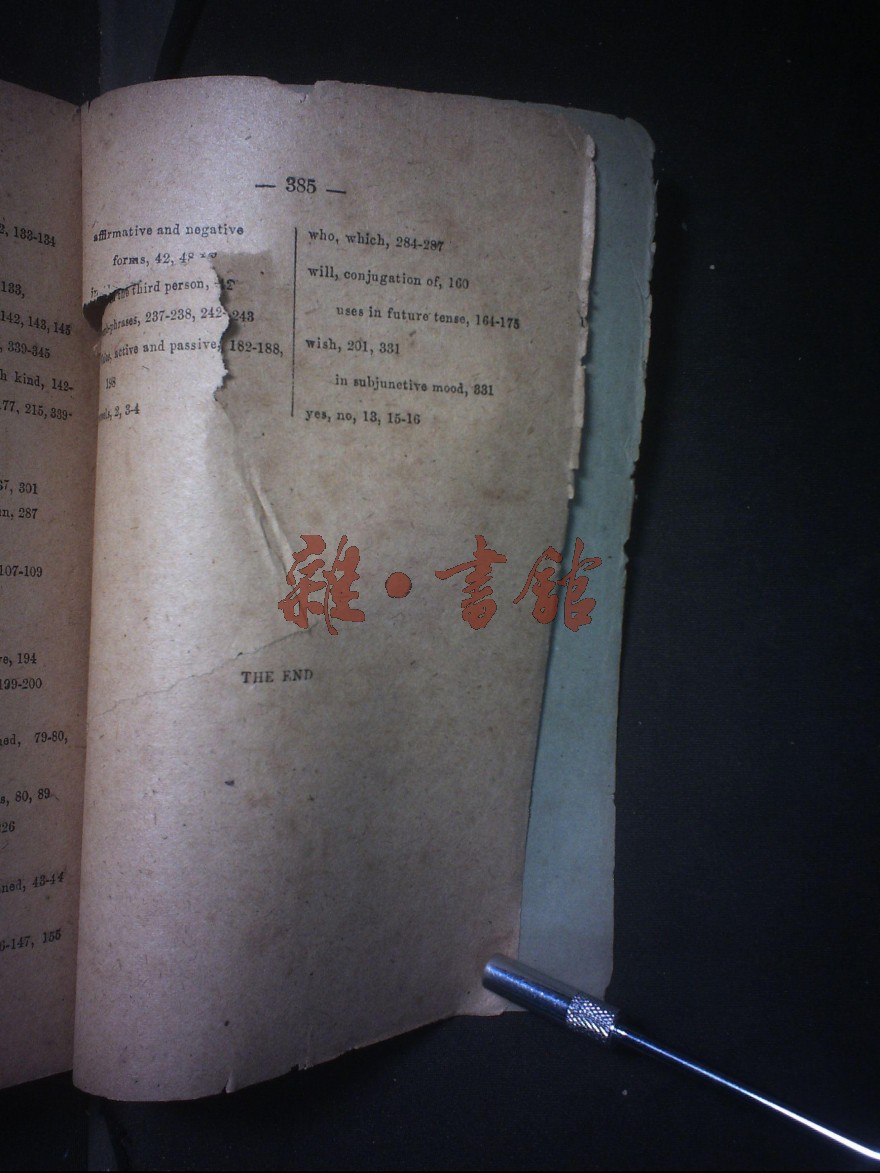 2, 133-134
133,
142, 143, 145
, 339-345
h kind, 142-
77, 215, 339-
67, 301
n, 287
107-109
e, 194
199-200
ed, 79-80,
s, 80, 89
26
ned, 43-44
6-147, 155
— 385 —
affirmative and negative
forms, 42, 48
the third person, 42
-phrases, 237-238, 242-243
active and passive, 182-188,
198
2, 3-4
who, which, 284-287
will, conjugation of, 160
uses in future tense, 164-175
wish, 201, 331
in subjunctive mood, 331
yes, no, 13, 15-16
雜·書館
THE END